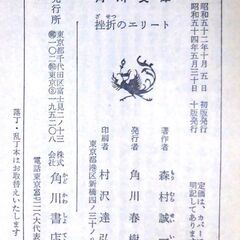 昭和五十二年十月五日 初版発行
昭和五十四年五月三十日 十版発行
ざせつ
挫折のエリート
定価は、カバーに
明記してあります
著作者 森村誠一
発行者 角川春樹
東京都港区新橋四ノ三十ノ
印刷者 村沢達弘
発行所
東京都千代田区富士見二ノ十三
〒一〇二 振替東京③一九五二〇八
株式 角川書店
かど かわ しょ てん
電話東京 二(大代表
落丁・乱丁本はお取替えいたします